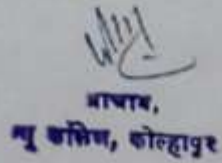 प्राचार्य,
न्यू कॉलेज, कोल्हापूर